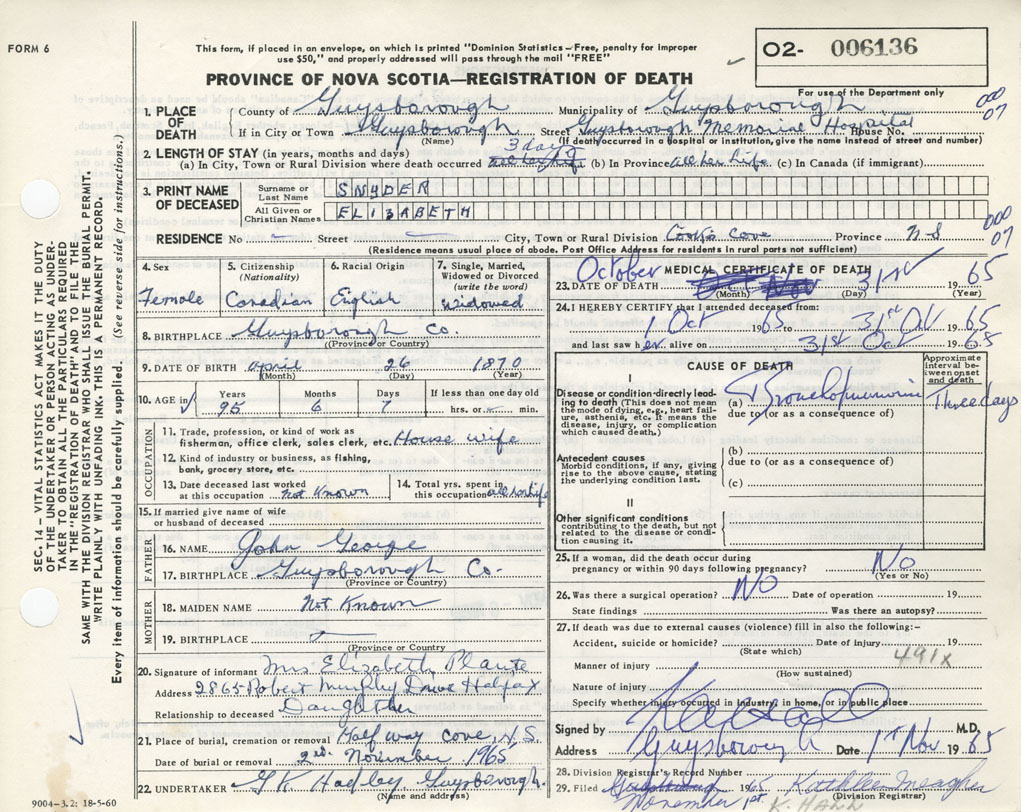 FORM 6
This form, if placed in an envelope, on which is printed "Dominion Statistics—Free, penalty for improper
use $50," and properly addressed will pass through the mail "FREE"
O2- 006136
PROVINCE OF NOVA SCOTIA—REGISTRATION OF DEATH
For use of the Department only
1. PLACE OF DEATH
County of Guysborough Municipality of Guysborough
000
07
If in City or Town Guysborough Street Guysborough Memorial Hospital House No.
(Name) (If death occurred in a hospital or institution, give the name instead of street and number)
2. LENGTH OF STAY (in years, months and days)
(a) In City, Town or Rural Division where death occurred 3 days (b) In Province all her life. (c) In Canada (if immigrant)
3. PRINT NAME OF DECEASED
Surname or Last Name SNYDER
All Given or Christian Names ELIZABETH
RESIDENCE No Street City, Town or Rural Division Cook's Cove Province N-S
000
07
(Residence means usual place of abode. Post Office Address for residents in rural parts not sufficient)
4. Sex
Female
5. Citizenship
(Nationality)
Canadian
6. Racial Origin
English
7. Single, Married,
Widowed or Divorced
(write the word)
Widowed
8. BIRTHPLACE Guysborough Co.
(Province or Country)
9. DATE OF BIRTH April 26 1870
(Month) (Day) (Year)
10. AGE in
Years Months Days If less than one day old
95 6 7 hrs. or min.
OCCUPATION
11. Trade, profession, or kind of work as
fisherman, office clerk, sales clerk, etc. House wife
12. Kind of industry or business, as fishing,
bank, grocery store, etc.
13. Date deceased last worked
at this occupation not Known
14. Total yrs. spent in
this occupation all her life
15. If married give name of wife
or husband of deceased
FATHER
16. NAME John George
17. BIRTHPLACE Guysborough Co.
(Province or Country)
MOTHER
18. MAIDEN NAME Not Known
19. BIRTHPLACE
(Province or Country)
20. Signature of informant Mrs Elizabeth Plante
Address 2865 Robert Murphy Drive Halifax
Relationship to deceased Daughter
21. Place of burial, cremation or removal Half way Cove, N.S.
Date of burial or removal 2nd. November 1965
22. UNDERTAKER G K Hadley Guysborough.
(Name and address)
October MEDICAL CERTIFICATE OF DEATH
23. DATE OF DEATH 31st 1965
(Month) (Day) (Year)
24. I HEREBY CERTIFY that I attended deceased from:
1 Oct 1965 to 31st Oct 1965
and last saw her alive on 31st Oct 1965
CAUSE OF DEATH
Approximate
interval between onset
and death
I
Disease or condition directly leading
to death (This does not mean
the mode of dying, e.g., heart failure,
asthenia, etc. It means the
disease, injury, or complication
which caused death.)
(a) Bronchopneumonia Three days
due to (or as a consequence of)
Antecedent causes
Morbid conditions, if any, giving
rise to the above cause, stating
the underlying condition last.
(b)
due to (or as a consequence of)
(c)
II
Other significant conditions
contributing to the death, but not
related to the disease or condition
causing it.
25. If a woman, did the death occur during
pregnancy or within 90 days following pregnancy? No
(Yes or No)
26. Was there a surgical operation? NO Date of operation 19
State findings Was there an autopsy?
27. If death was due to external causes (violence) fill in also the following:-
Accident, suicide or homicide? Date of Injury 19
(State which)
491x
Manner of injury
(How sustained)
Nature of injury
Specify whether injury occurred in industry in home, or in public place
Signed by M.D.
Address Guysborough Date 1st Nov 1965
28. Division Registrar's Record Number
29. Filed November 1st 1965 Kathleen Meagher
(Division Registrar)
K. HALL
SEC. 14 – VITAL STATISTICS ACT MAKES IT THE DUTY
OF THE UNDERTAKER OR PERSON ACTING AS UNDER-
TAKER TO OBTAIN ALL THE PARTICULARS REQUIRED
IN THE "REGISTRATION OF DEATH" AND TO FILE THE
SAME WITH THE DIVISION REGISTRAR WHO SHALL ISSUE THE BURIAL PERMIT.
WRITE PLAINLY WITH UNFADING INK. THIS IS A PERMANENT RECORD.
Every item of information should be carefully supplied. (See reverse side for instructions.)
9004-3.2: 18-5-60